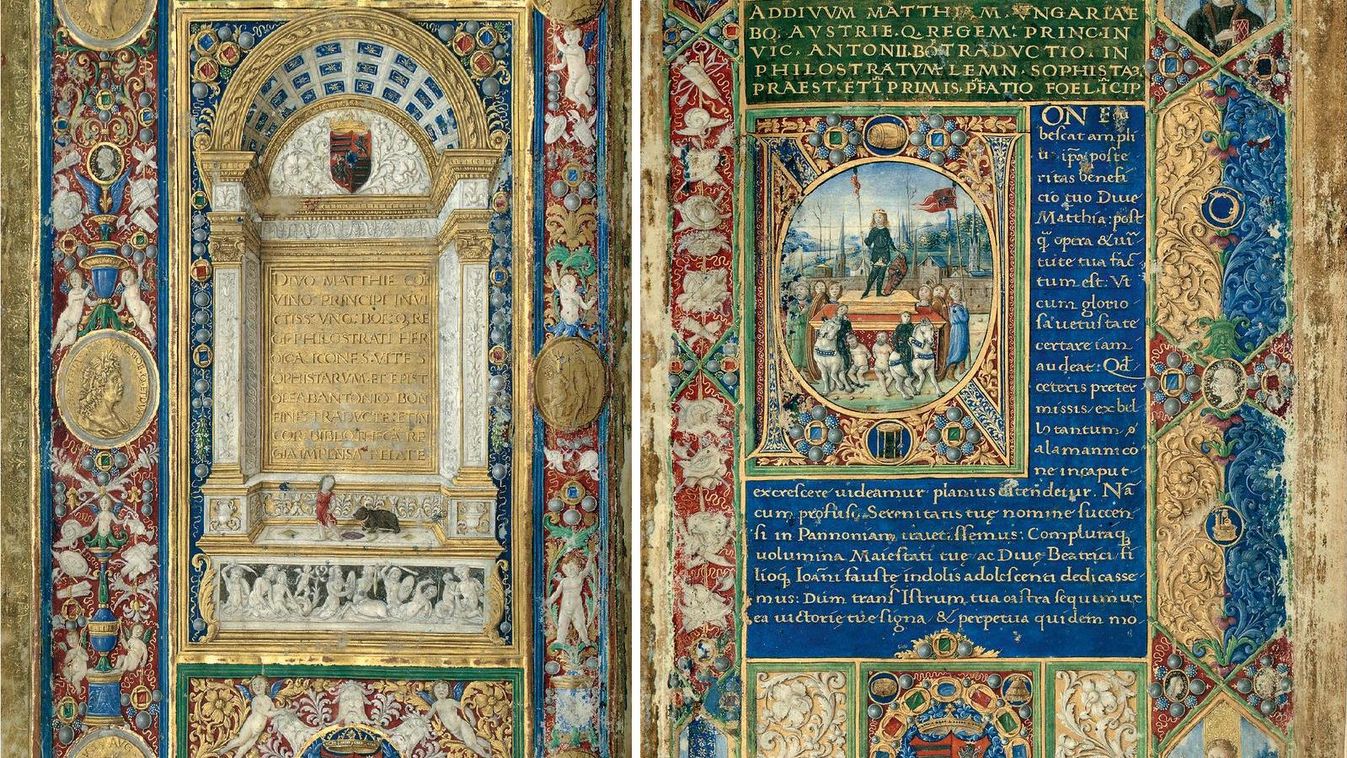 DIVO MATTHIE COR
VINO PRINCIPI INVI
CTISS VNG. BO Q. RE
GI PHILOSTRATI HER
OICA ICONES VITE S
OPHISTARVM ET EPIST
OLE AB ANTONIO BON
FINE TRADVCTE ET IN
COR. BIBLIOTHECA RE
GIA IMPENSA RELATE
AD DIVVM MATTHIAM. VNGARIAE
BO. AVSTRIE. Q. REGEM: PRINC. IN
VIC. ANTONII. BO. TRADVCTIO. IN
PHILOSTRATVM LEMN. SOPHISTA
PRAEST. ET I PRIMIS PFATIO FOEL. ICIP
ON
bescat ampli
u ipa poste
ritas benefi
cio tuo Diue
Matthia: post
q̃ opera & uir
tute tua fac
tum est: Vt
cum glorio
sa uetustate
certare iam
audeat: Qd
ceteris preter
missis, ex bel
lo tantum
alamannico
ne in caput
excrescere uideamur planius ostendetur. Nã
cum profusi. Serenitatis tuę nomine succen
si in Pannoniam uenissemus: Compluraq
uolumina Maiestati tuę ac Diuę Beatrici fi
lioq Ioãni fauste indolis adolescenti dedicasse
mus: Dum trans Istrum, tua castra sequimur
ea uictorie tue signa & perpetua quidem mo